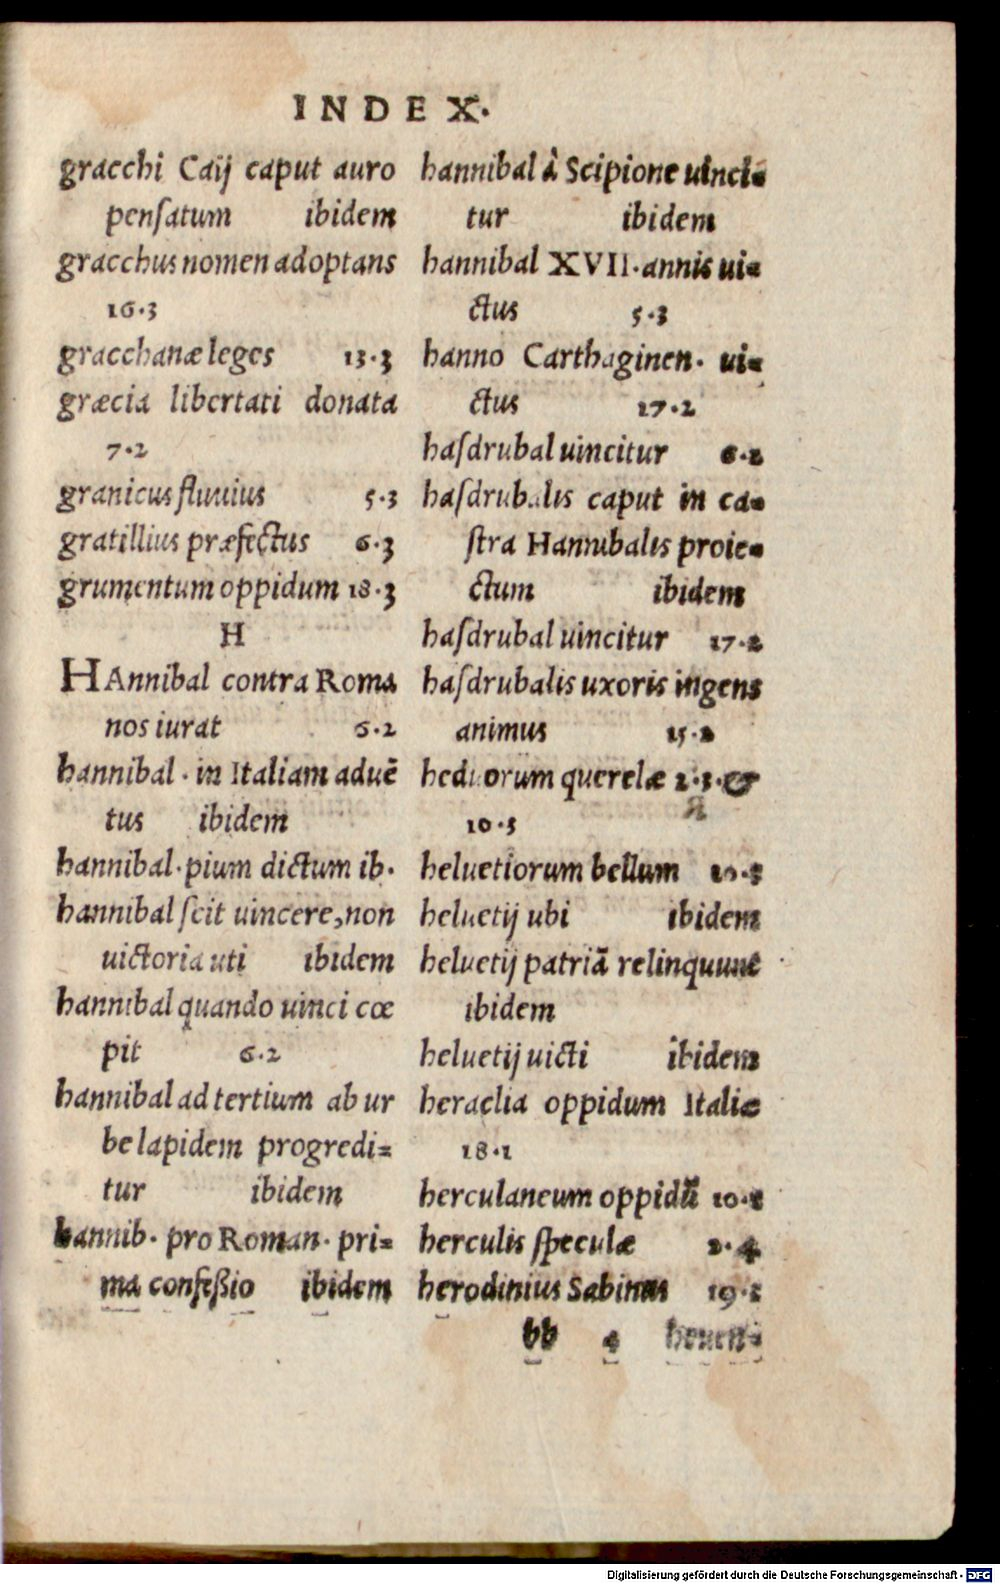 INDEX.
gracchi Caij caput auro
penſatum ibidem
gracchus nomen adoptans
16.3
gracchanæ leges 13.3
græcia libertati donata
7.2
granicus fluuius 5.3
gratillius præfectus 6.3
grumentum oppidum 18.3
H
HAnnibal contra Roma
nos iurat 6.2
hannibal. in Italiam aduē
tus ibidem
hannibal. pium dictum ib.
hannibal ſcit uincere, non
uictoria uti ibidem
hannibal quando uinci cœ
pit 6.2
hannibal ad tertium ab ur
be lapidem progredi=
tur ibidem
hannib. pro Roman. pri=
ma confeßio ibidem
hannibal à Scipione uinci=
tur ibidem
hannibal XVII. annis ui=
ctus 5.3
hanno Carthaginen. ui=
ctus 17.2
haſdrubal uincitur 6.2
haſdrubalis caput in ca=
ſtra Hannibalis proie=
ctum ibidem
haſdrubal uincitur 17.2
haſdrubalis uxoris ingens
animus 15.2
heduorum querelæ 2.3. &
10.3
heluetiorum bellum
heluetij ubi ibidem
heluetij patriā relinquunt
ibidem
heluetij uicti ibidem
heraclia oppidum Italiæ
18.1
herculaneum oppidū
herculis ſpeculæ 2.4
herodinius Sabinus
bb 4
Digitalisierung gefördert durch die Deutsche Forschungsgemeinschaft - DFG